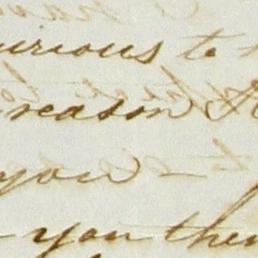 urious to
reason
you
you then